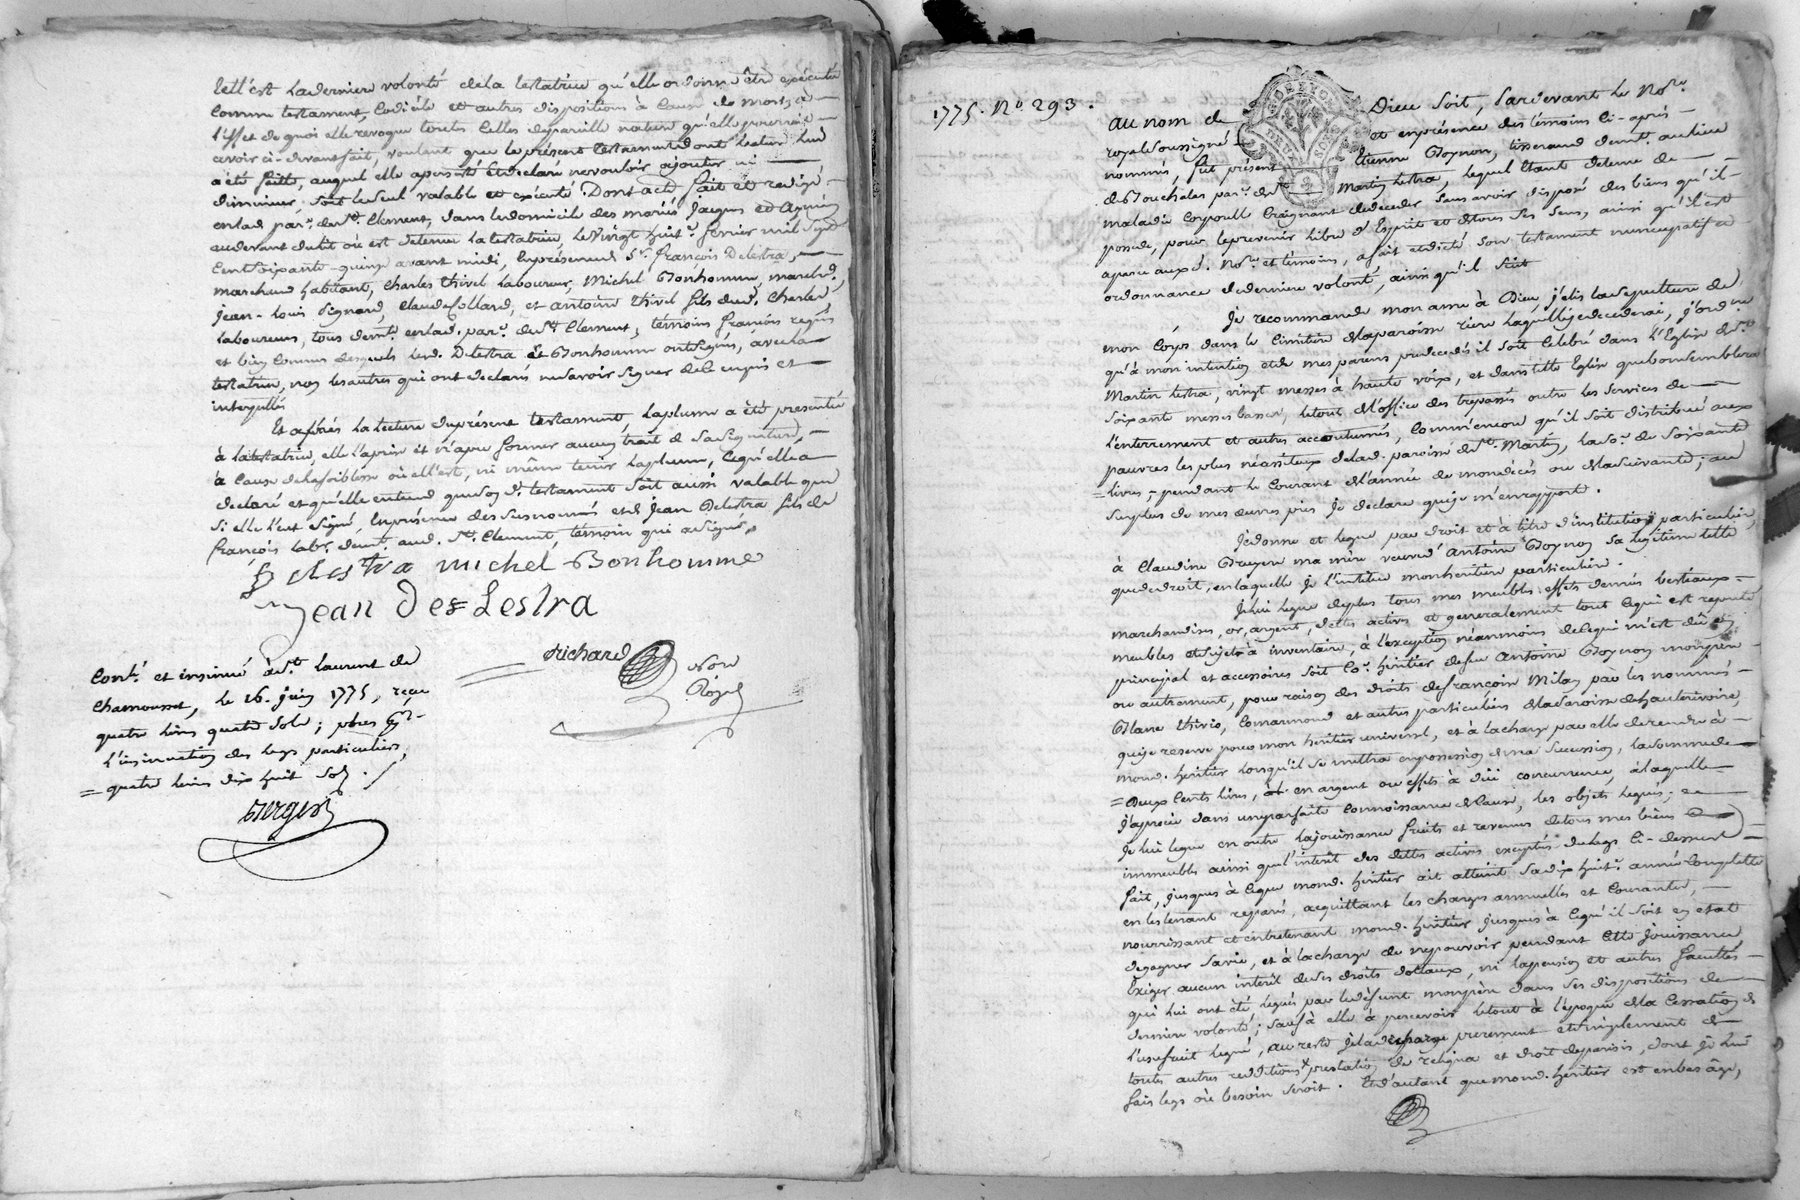 telle est la derniere volonté de la testatrice qu'elle ordonne être exécutée
comme testament, codicile et autres dispositions à cause de mort, à
l'effet de quoi elle revoque toutes celles de pareille nature qu'elle pourroit
avoir ci-devant fait, voulant que le présent testament dont lecture lui
a été faitte, auquel elle a persisté et declaré ne vouloir ajouter ni
diminuer, soit le seul valable et exécuté Dont acte fait et redigé
en lad. par.e de St. Clement, dans le domicile des mariés Jacques et
audevant dudit où est detenue la testatrice, le vingt huit.e fevrier mil sept
cent soixante-quinze avant midi, en présence de Sr. françois Delestra,
marchand habitant, Charles thivel laboureur, Michel Bonhomme, marchd.
Jean-Louis Pignard, Claude Collard, et antoine thivel fils dud. Charles,
laboureurs, tous demt. en lad. par.e de St. Clement, témoins françois requis
et bien connus desquels led. Delestra et Bonhomme ont signé, avec la
testatrice, non les autres qui ont declarés ne savoir signer de ce enquis et
interpellés
Et après la lecture du présent testament, la plume a été presentée
à la testatrice, elle l'a prise et n'a pu former aucun trait de sa signature,
à cause de la foiblesse où elle est, ni même tenir la plume, ce qu'elle a
declaré et qu'elle entend que son d. testament soit aussi valable que
si elle l'eut signé, en présence des susnommés et de Jean Delestra fils de
françois labr. demt. aud. St. Clement, témoin qui a signé.
Delestra michel Bonhomme
jean des Lestra
richard
Nore
Royal
Cont.é et insinué à St. Laurent de
Chamousset, le 16. juin 1775, reçu
quatre livres quatre sols; plus pr.
l'insinuation des legs particuliers,
= quatre livres dix huit sols.
Verger
1775. No 293.
au nom de Dieu soit, Pardevant le Nore.
royal soussigné et en présence des témoins ci-après
nommés, fut présent Etienne Boynon, tisserand demt. au lieu
de Bouchalas par.e de St. Martin lestra, lequel étant detenu de
maladie corporelle craignant de deceder sans avoir disposé des biens qu'il
possede, pour le prevenir libre d'Esprit et de tous ses sens, ainsi qu'il est
aparu auxd. Nore. et témoins, a fait et dicté son testament nuncupatif et
ordonnance de derniere volonté, ainsi qu'il suit
Je recommande mon ame à Dieu, j'elis la sepulture de
mon Corps dans le Cimetiere de la paroisse riere laquelle je decederai, j'ordne
qu'à mon intention et de mes parens predecedés il soit Celebré dans l'Eglise de St.
Martin lestra, vingt messes à haute voix, et dans telle Eglise que bon semblera
soixante messes basses, le tout de l'office des trepassés outre les services de
l'enterrement et autres accoutumés, comme encore qu'il soit distribué aux
pauvres les plus nécessiteux de lad. paroisse de St. Martin, la so.e de soixante
= livres, pendant le courant de l'année de mon décès ou de la suivante; au
surplus de mes œuvres pies je declare que je m'en rapporte.
Je donne et legue par droit et à titre d'institution particuliere,
à Claudine Bruyere ma mère veuve d'Antoine Boynon sa legitime telle
que de droit, en laquelle je l'institue mon heritiere particuliere.
Je lui legue de plus tous mes meubles, effets denrées bestiaux
marchandises, or, argent, dettes actives et generalement tout ce qui est reputé
meubles et sujets à inventaire, à l'exception néanmoins de ce qui m'est dû en
principal et accessoires soit Co. héritier de feu antoine Boynon mon père
ou autrement, pour raison des droits de françoise Milan par les nommés
Blane thivio, Comarmond et autres particuliers de la paroisse de hauterivoire,
que je reserve pour mon héritier universel, et à la charge par elle de rendre à
mond. héritier lorsqu'il se mettra en possession de ma succession, la somme de
= Deux Cents livres, en argent ou effets à dûe concurrence, à laquelle
j'aprecie dans une parfaite connoissance de cause, les objets legués; et
je lui legue en outre la jouissance fruits et revenus de tous mes biens
immeubles ainsi que l'interêt des dettes actives exceptés du legs ci-dessus
fait, jusques à ce que mond. héritier ait atteint sa dix huit.e année complette
en les tenant reparés, acquittant les charges annuelles et courantes,
nourrissant et entretenant mond. héritier jusques à ce qu'il soit en état
de gagner sa vie, et à la charge de ne pouvoir pendant cette jouissance
exiger aucun interêt de ses droits dottaux, ni la pension et autres facultés
qui lui ont été legués par le défunt mon père dans ses dispositions de
derniere volonté; sauf à elle à percevoir le tout à l'époque de la cessation de
l'usufruit legué, au reste je la decharge purement et simplement de
toutes autres redditions & prestation de reliqua et droit de parisis, dont je lui
fais legs où besoin seroit. Et d'autant que mond. héritier est en bas âge,